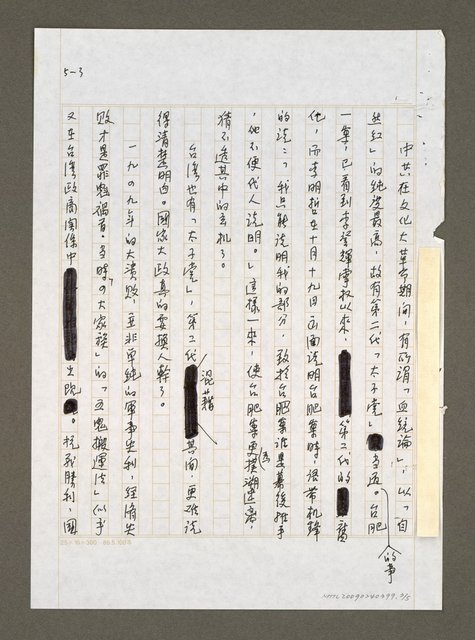 5-3
中共在文化大革命期間，有所謂「血統論」，以「自
然紅」的純度最高，故有第二代「太子党」當道。台肥
的事
一案，已看到李登輝掌权以來，第二代的腐
化，而李明哲在十月十九日函面說明台肥案時，語帶机鋒
的說：「我只能說明我的部分，致於台肥案誰是幕後推手
，他不便代人說明。」這樣一來，使台肥案更撲溯迷离，
猜不透其中的玄机了。
台灣也有「太子党」，第二代其間，更难說
混雜
得清楚明白。國家大政真的要換人幹了。
一九四九年的大潰敗，並非單純的軍事失利，經濟失
敗才是罪魁禍首。當時「四大家族」的「五鬼搬運法」似乎
又在台灣政商關係中出現。抗戰勝利，國
25×16=300
NMTL20090240499 3/5